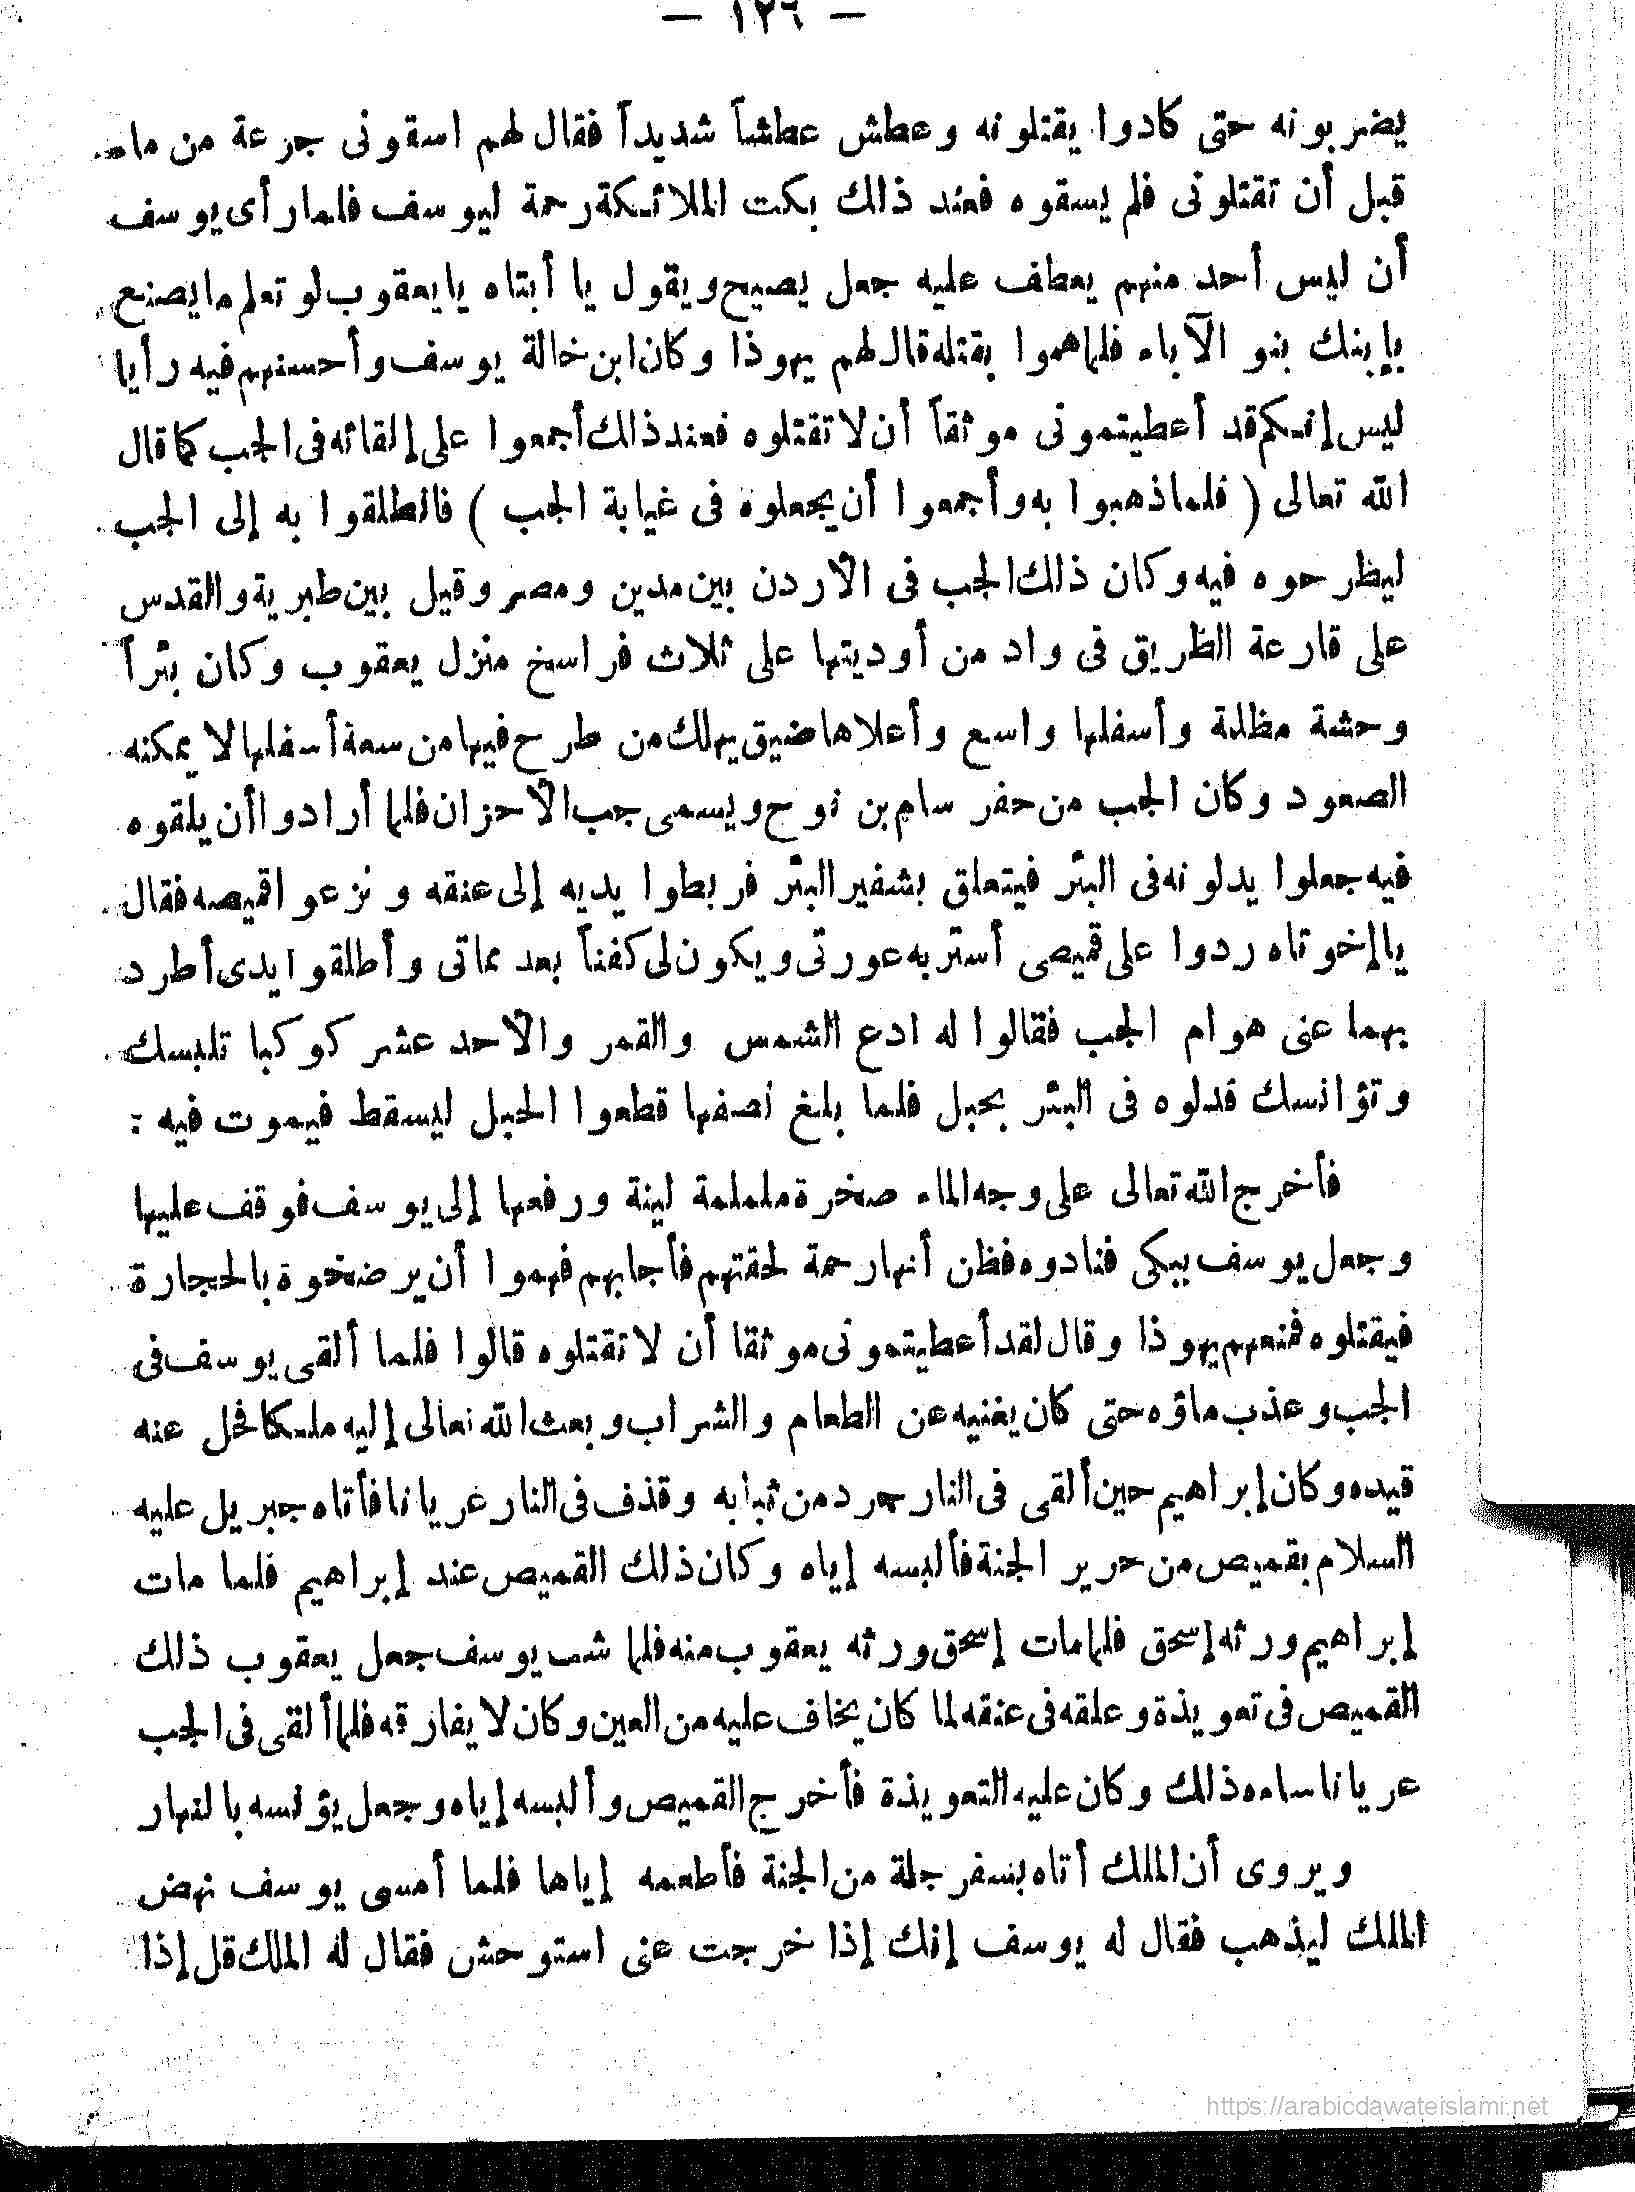 — ١٢٦ —
يضربونه حتى كادوا يقتلونه وعطش عطشاً شديداً فقال لهم اسقونى جرعة من ماء
قبل أن تقتلونى فلم يسقوه فعند ذلك بكت الملائكة رحمة ليوسف فلما رأى يوسف
أن ليس أحد منهم يعطف عليه جعل يصيح ويقول يا أبتاه يا يعقوب لو تعلم ما يصنع
بإبنك بنو الآباء فلما هموا بقتله قال لهم يهوذا وكان ابن خالة يوسف وأحسنهم فيه رأيا
ليس إنكم قد أعطيتمونى موثقاً أن لا تقتلوه فعند ذلك أجمعوا على إلقائه فى الجب كما قال
الله تعالى ( فلما ذهبوا به وأجمعوا أن يجعلوه فى غيابة الجب ) فانطلقوا به إلى الجب
ليطرحوه فيه وكان ذلك الجب فى الأردن بين مدين ومصر وقيل بين طبرية والقدس
على قارعة الطريق فى واد من أوديتها على ثلاث فراسخ منزل يعقوب وكان بئراً
وحشة مظلمة وأسفلها واسع وأعلاها ضيق يهلك من طرح فيها من سعة أسفلها لا يمكنه
الصعود وكان الجب من حفر سام بن نوح ويسمى جب الأحزان فلما أرادوا أن يلقوه
فيه جعلوا يدلونه فى البئر فيتعلق بشفير البئر فربطوا يديه إلى عنقه ونزعوا قميصه فقال
يا إخوتاه ردوا على قميصى أستر به عورتى ويكون لى كفناً بعد مماتى وأطلقوا يدى أطرد
بهما عنى هوام الجب فقالوا له ادع الشمس والقمر والأحد عشر كوكبا تلبسك
وتؤانسك فدلوه فى البئر بحبل فلما بلغ نصفها قطعوا الحبل ليسقط فيموت فيه :
فأخرج الله تعالى على وجه الماء صخرة ململمة لينة ورفعها إلى يوسف فوقف عليها
وجعل يوسف يبكى فنادوه فظن أنها رحمة لحقتهم فأجابهم فهموا أن يرضخوة بالحجارة
فيقتلوه فمنعهم يهوذا وقال لقد أعطيتمونى موثقا أن لا تقتلوه قالوا فلما ألقى يوسف فى
الجب وعذب ماؤه حتى كان يغنيه عن الطعام والشراب وبعث الله تعالى إليه ملكا فحل عنه
قيده وكان إبراهيم حين ألقى فى النار جرد من ثيابه وقذف فى النار عريانا فأتاه جبريل عليه
السلام بقميص من حرير الجنة فألبسه إياه وكان ذلك القميص عند إبراهيم فلما مات
إبراهيم ورثه إسحق فلما مات إسحق ورثه يعقوب منه فلما شب يوسف جعل يعقوب ذلك
القميص فى تعويذة وعلقه فى عنقه لما كان يخاف عليه من العين وكان لا يفارقه فلما ألقى فى الجب
عريانا ساءه ذلك وكان عليه التعويذة فأخرج القميص وألبسه إياه وجعل يؤنسه بالنهار
ويروى أن الملك أتاه بسفرجلة من الجنة فأطعمه إياها فلما أمسى يوسف نهض
الملك ليذهب فقال له يوسف إنك إذا خرجت عنى استوحش فقال له الملك قل إذا
https://arabicdawateislami.net